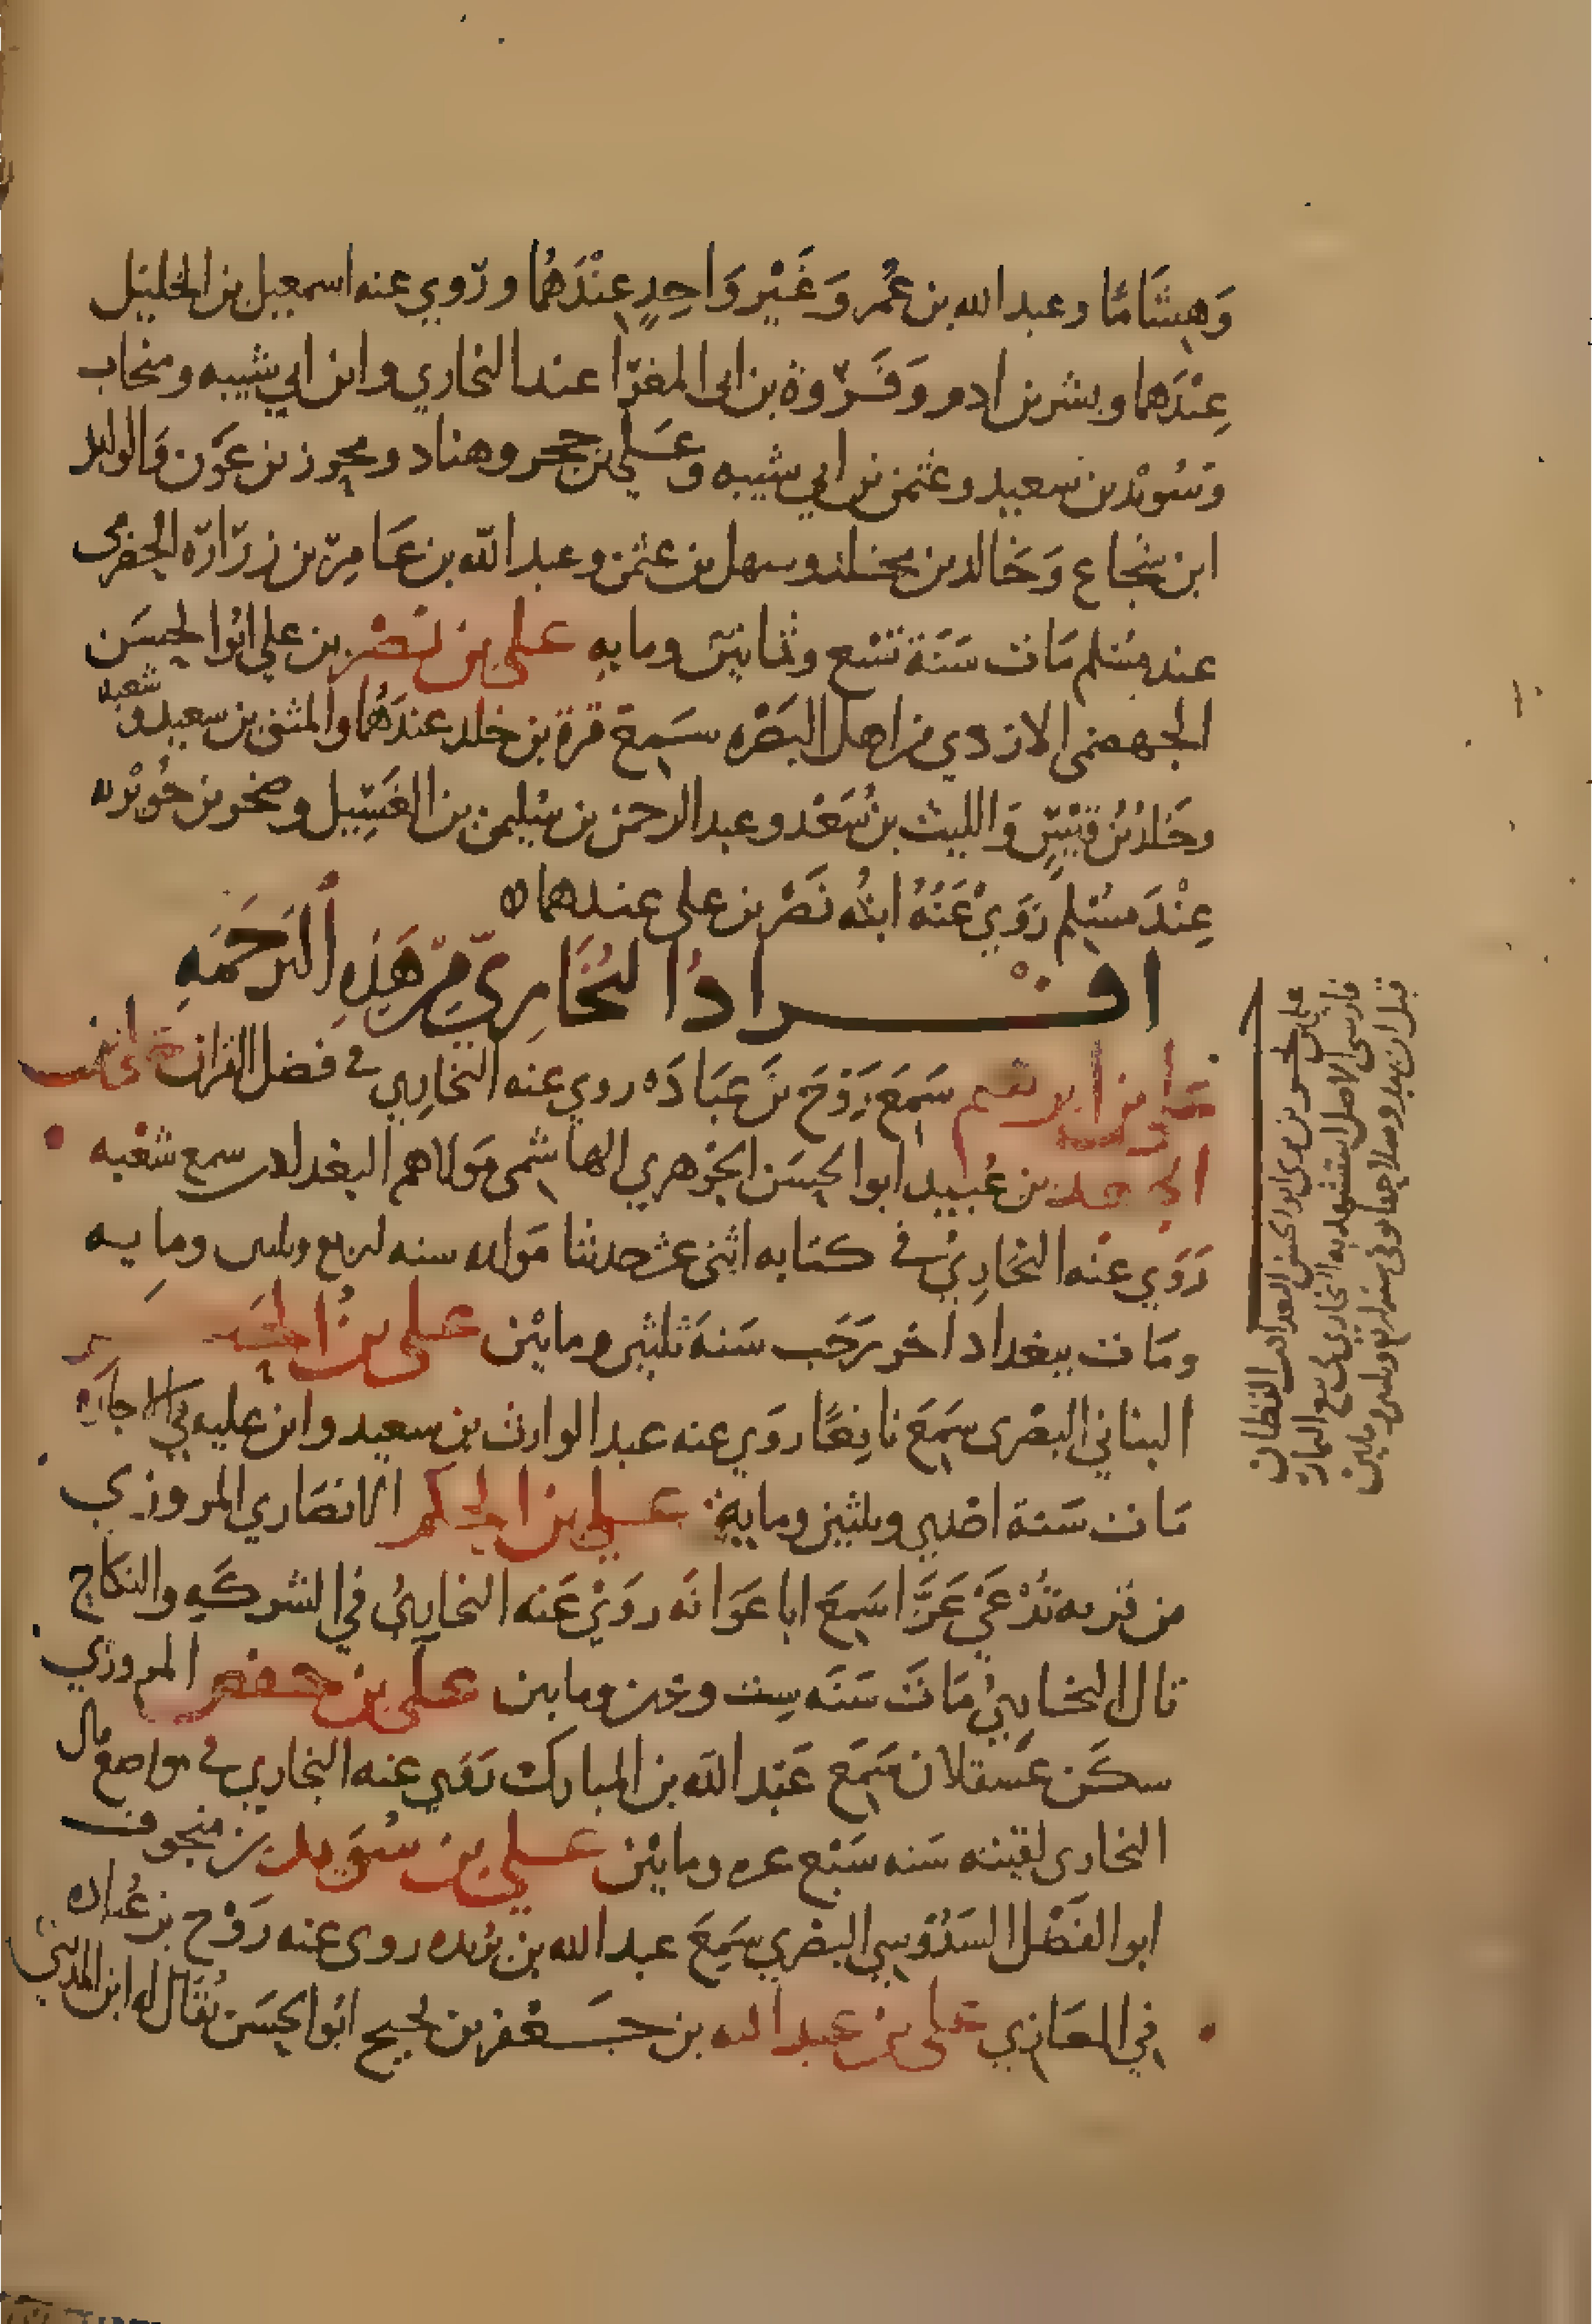 وَهِشَامًا وعبد الله بن عُمر وَغَيْر وَاحِدٍ عِنْدَهُمَا وروي عنه اسمعيل بن الخليل
عِنْدَهما وبشر بن ادم وَفَرْوة بن ابى المغرا عند البخاري وابن ابي شيبه ومنجاب
وسُويْد بن سعيد وعثمن بن ابي شيبه وعَلي بن حجر وهناد ومحرز بن عَوْن وَالوليد
ابن شجاع وَخَالد بن مخلد وسهل بن عثمن وعبد الله بن عَامِر بن زرَارَه الحضرمى
عند مسلم مَات سَنَة تسْع وثمانين ومايه علي بن نصْر بن علي ابُوا الحسَن
الجهضمى الازدي من اهل البَصْره سَمِعَ قرة بن خلد عندَهُمَا والمثنى بن سعيد وشعبه
وخلد بن قيْسٍ وَالليث بن سَعْد وعبد الرحمن بن سُليمن بن الغَسِيل وصخر بن جُوَيْريه
عِنْدَ مسْلم رَوَيْ عَنْهُ ابنُه نَصْر بن على عندهما
افْــراد البُخَارِيّ مِنْ هَذِهِ الترَجَمَهِ
علي بن ابرهيم سَمِعَ رَوْحَ بْنَ عبَادَه روي عنه البخاري في فضل القران علي بن
الجعد بن عُبيد ابوا الحسَن الجَوْهري الهاشمى مَولاهم البغدادى سمع شعْبه
رَوَي عنْه البخاريْ في كتابه اثنى عشر حديثا مَولده سنه اربع وثلثين ومايه
ومَات ببغداد اخر رَجَب سَنةَ ثلثين ومايتْين علي بن الحكَم
البناني البصْرى سَمِعَ نافِعًا روَي عنه عبد الوارث بن سعيد وابن عليه في الاجاره
مَات سَنة احدي وثلثين ومايه علي بن الحكم الانصَاري المروزي
من قريه تدْعَيْ غَزَا سَمِعَ ابا عَوَانَه روَيْ عَنه البخاري في الشركَه والنكاح
قال البخاريُّ مَاتَ سَنَه سِت وعشرين ومايتين علي بن حفص المروزي
سكَن عَسقلان سَمِعَ عَبْد الله بن المبارك رَوَي عنه البخاري في مواضع قال
البخارى لقيته سَنه سَبْع عشره ومايتْين علي بن سُوَيد بن منجوف
ابوا الفَضْل السَدُوسِي البصْري سَمِعَ عبد الله بن بُريده روى عنه رَوْح بن عُباده
في المغَازي علي بن عبد الله بن جَعْفر بن نجيح ابُوا الحسَن يُقَال له ابن المدينيّ
علي بن بحر بن بري ابوا الحسن البغدادى القطان
فارسى الاصل استشهد به البخاري